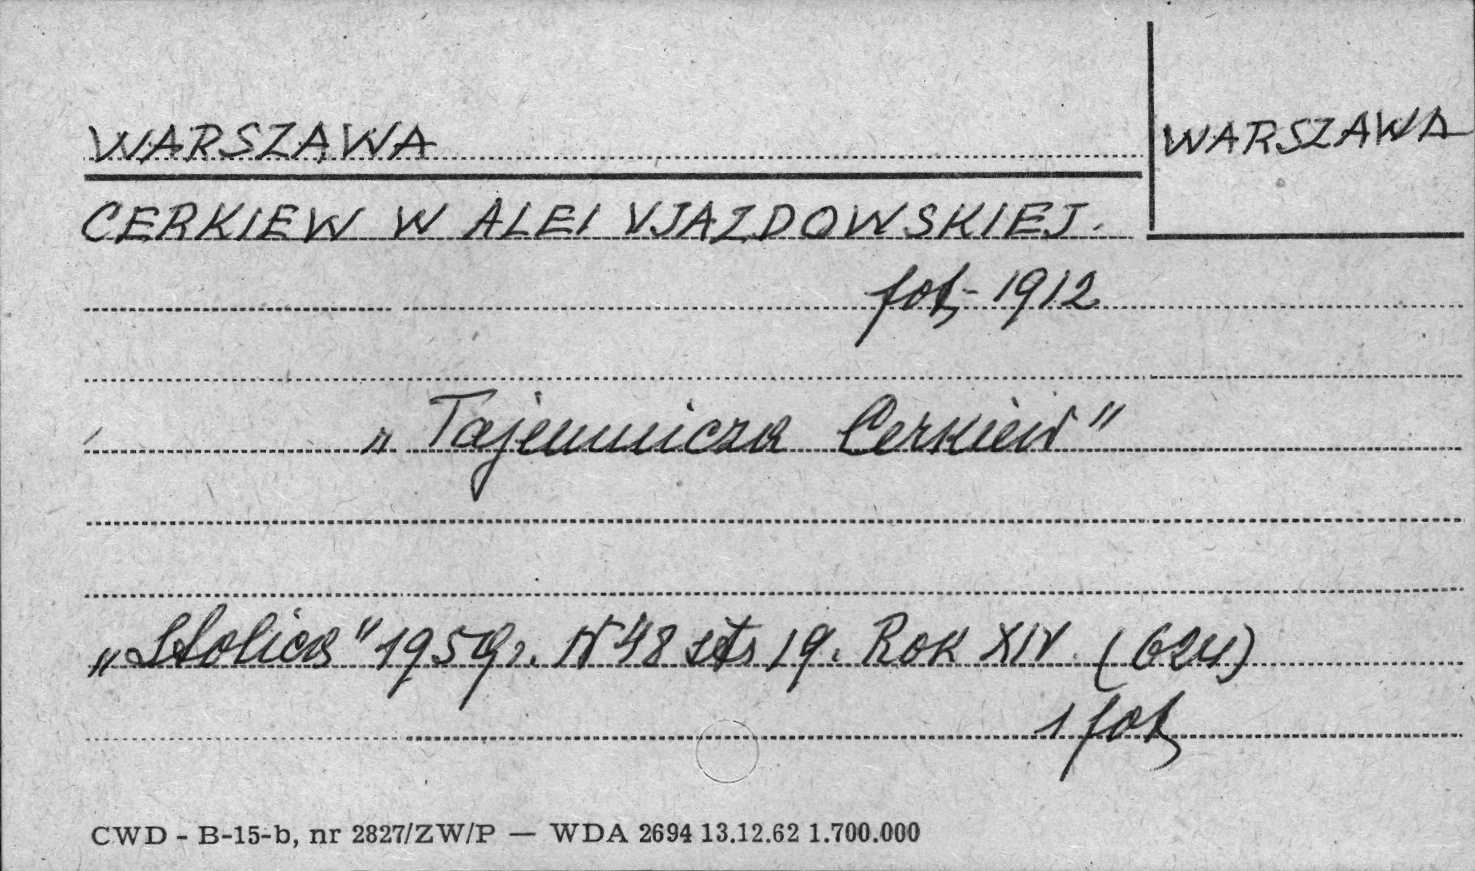 WARSZAWA
WARSZAWA
CERKIEW W ALEI UJAZDOWSKIEJ.
fot. 1912
„Tajemnicza Cerkiew”
„Stolica” 1959 r. N 48 str 19. Rok XIV. (624)
1 fot
CWD - B-15-b, nr 2827/ZW/P — WDA 2694 13.12.62 1.700.000